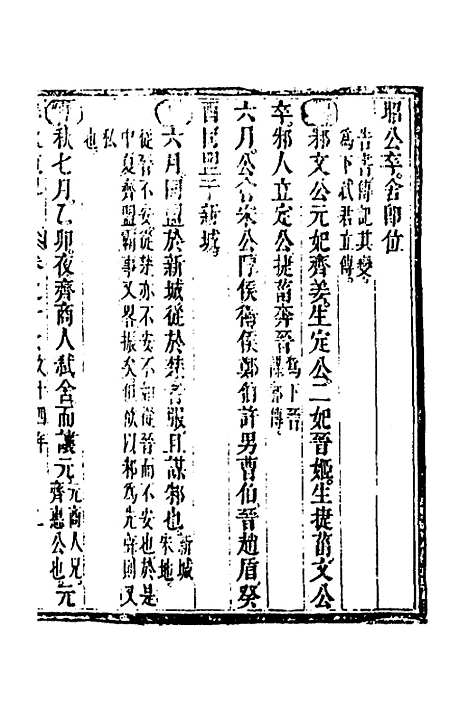 昭公卒。舍卽位。
告書傳記其變。
爲下弑君立傳。
邾文公元妃齊姜。生定公。二妃晉姬。生捷菑。文公
卒。邾人立定公。捷菑奔晉。爲下晉
謀邾傳。
六月。公會宋公陳侯衛侯鄭伯許男曹伯晉趙盾。癸
酉。同盟于新城。
六月。同盟於新城。從於楚者服。且謀邾也。新城
宋地。
從晉不安。從楚亦不安。從晉而不安也。於是
中夏齊盟霸事又畧振矣。以邾爲先。則又
私
也。
秋七月。乙卯夜。齊商人弑舍而讓元。元。商人兄。
齊惠公也。元